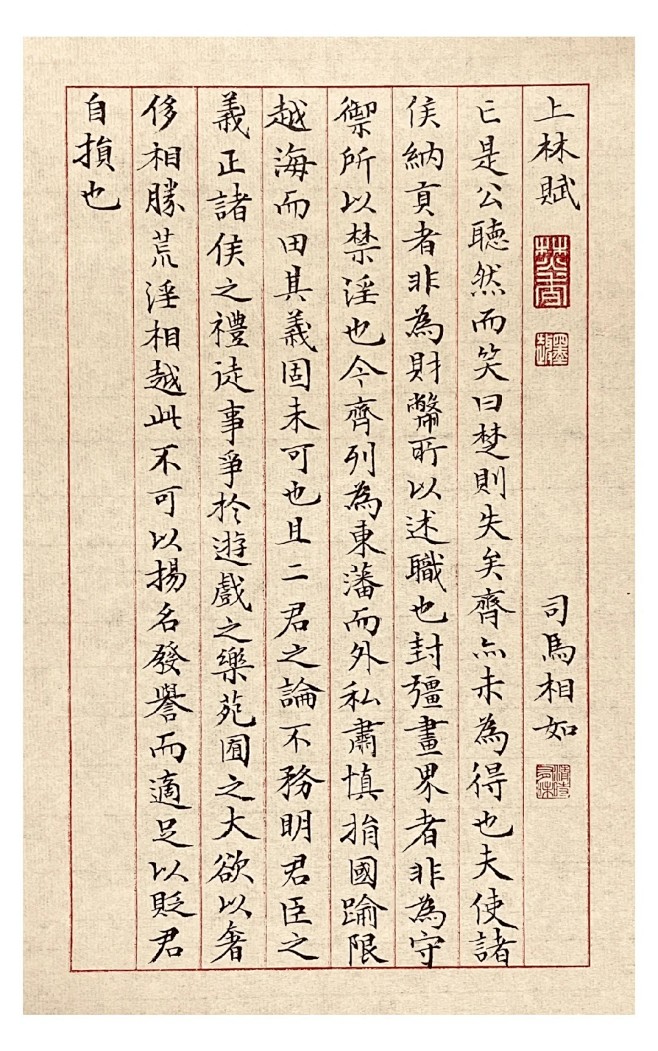 上林賦 司馬相如
亡是公聽然而笑曰楚則失矣齊亦未為得也夫使諸
侯納貢者非為財幣所以述職也封疆畫界者非為守
禦所以禁淫也今齊列為東藩而外私肅慎捐國踰限
越海而田其義固未可也且二君之論不務明君臣之
義正諸侯之禮徒事爭於遊戲之樂苑囿之大欲以奢
侈相勝荒淫相越此不可以揚名發譽而適足以貶君
自損也